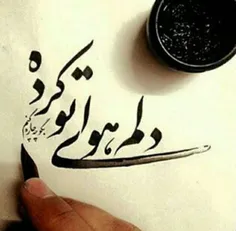 دلم هوای تو کرده
بگو چکار کنم